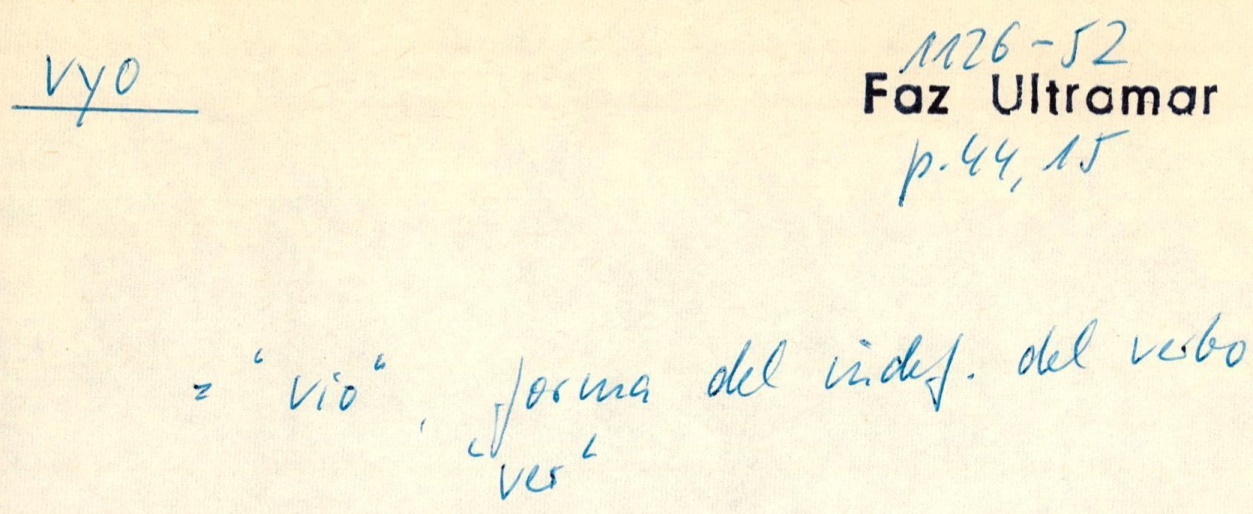 vyo
1126-52
Faz Ultramar
p. 44, 15
= "vio", forma del indef. del verbo
"ver"